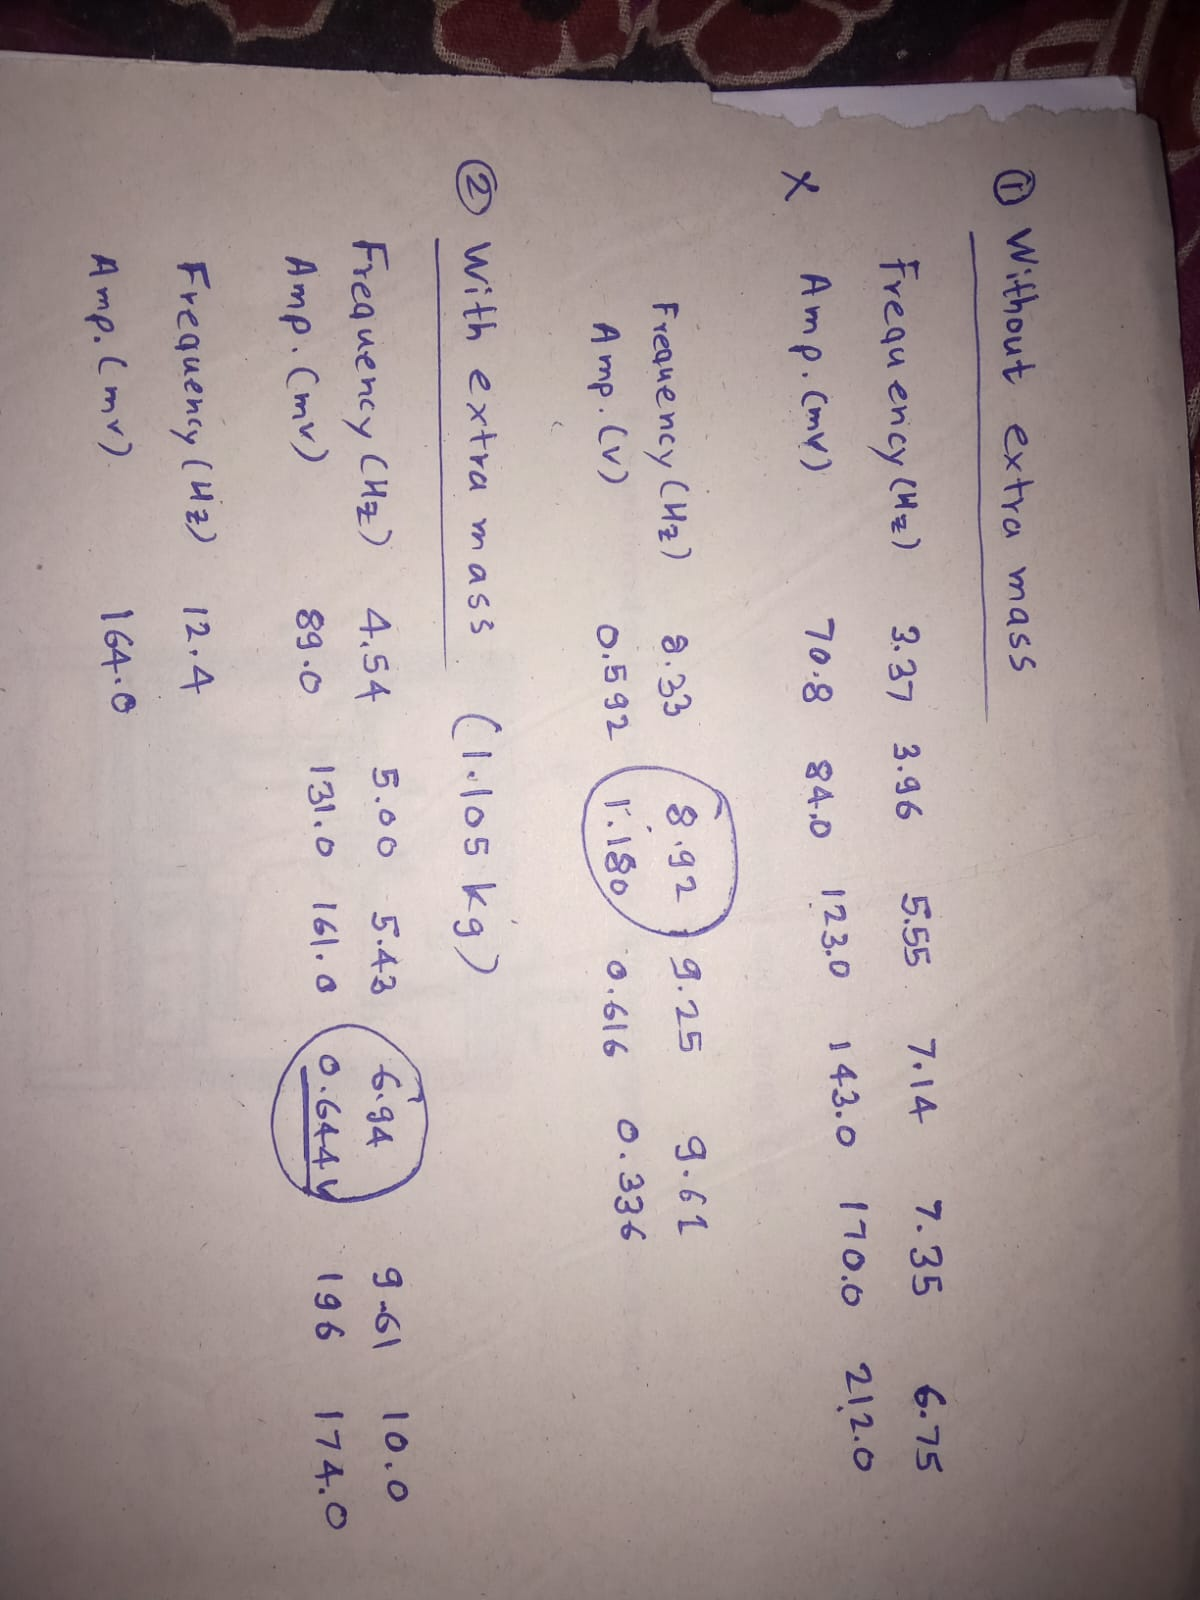 ① Without extra mass
Frequency (Hz) 3.37 3.96 5.55 7.14 7.35 6.75
X Amp. (mV) 70.8 84.0 123.0 143.0 170.0 212.0
Frequency (Hz) 8.33 8.92 9.25 9.61
Amp. (V) 0.592 1.180 0.616 0.336
② With extra mass (1.105 kg)
Frequency (Hz) 4.54 5.00 5.43 6.94 9.61 10.0
Amp. (mV) 89.0 131.0 161.0 0.644 V 196 174.0
Frequency (Hz) 12.4
Amp. (mV) 164.0